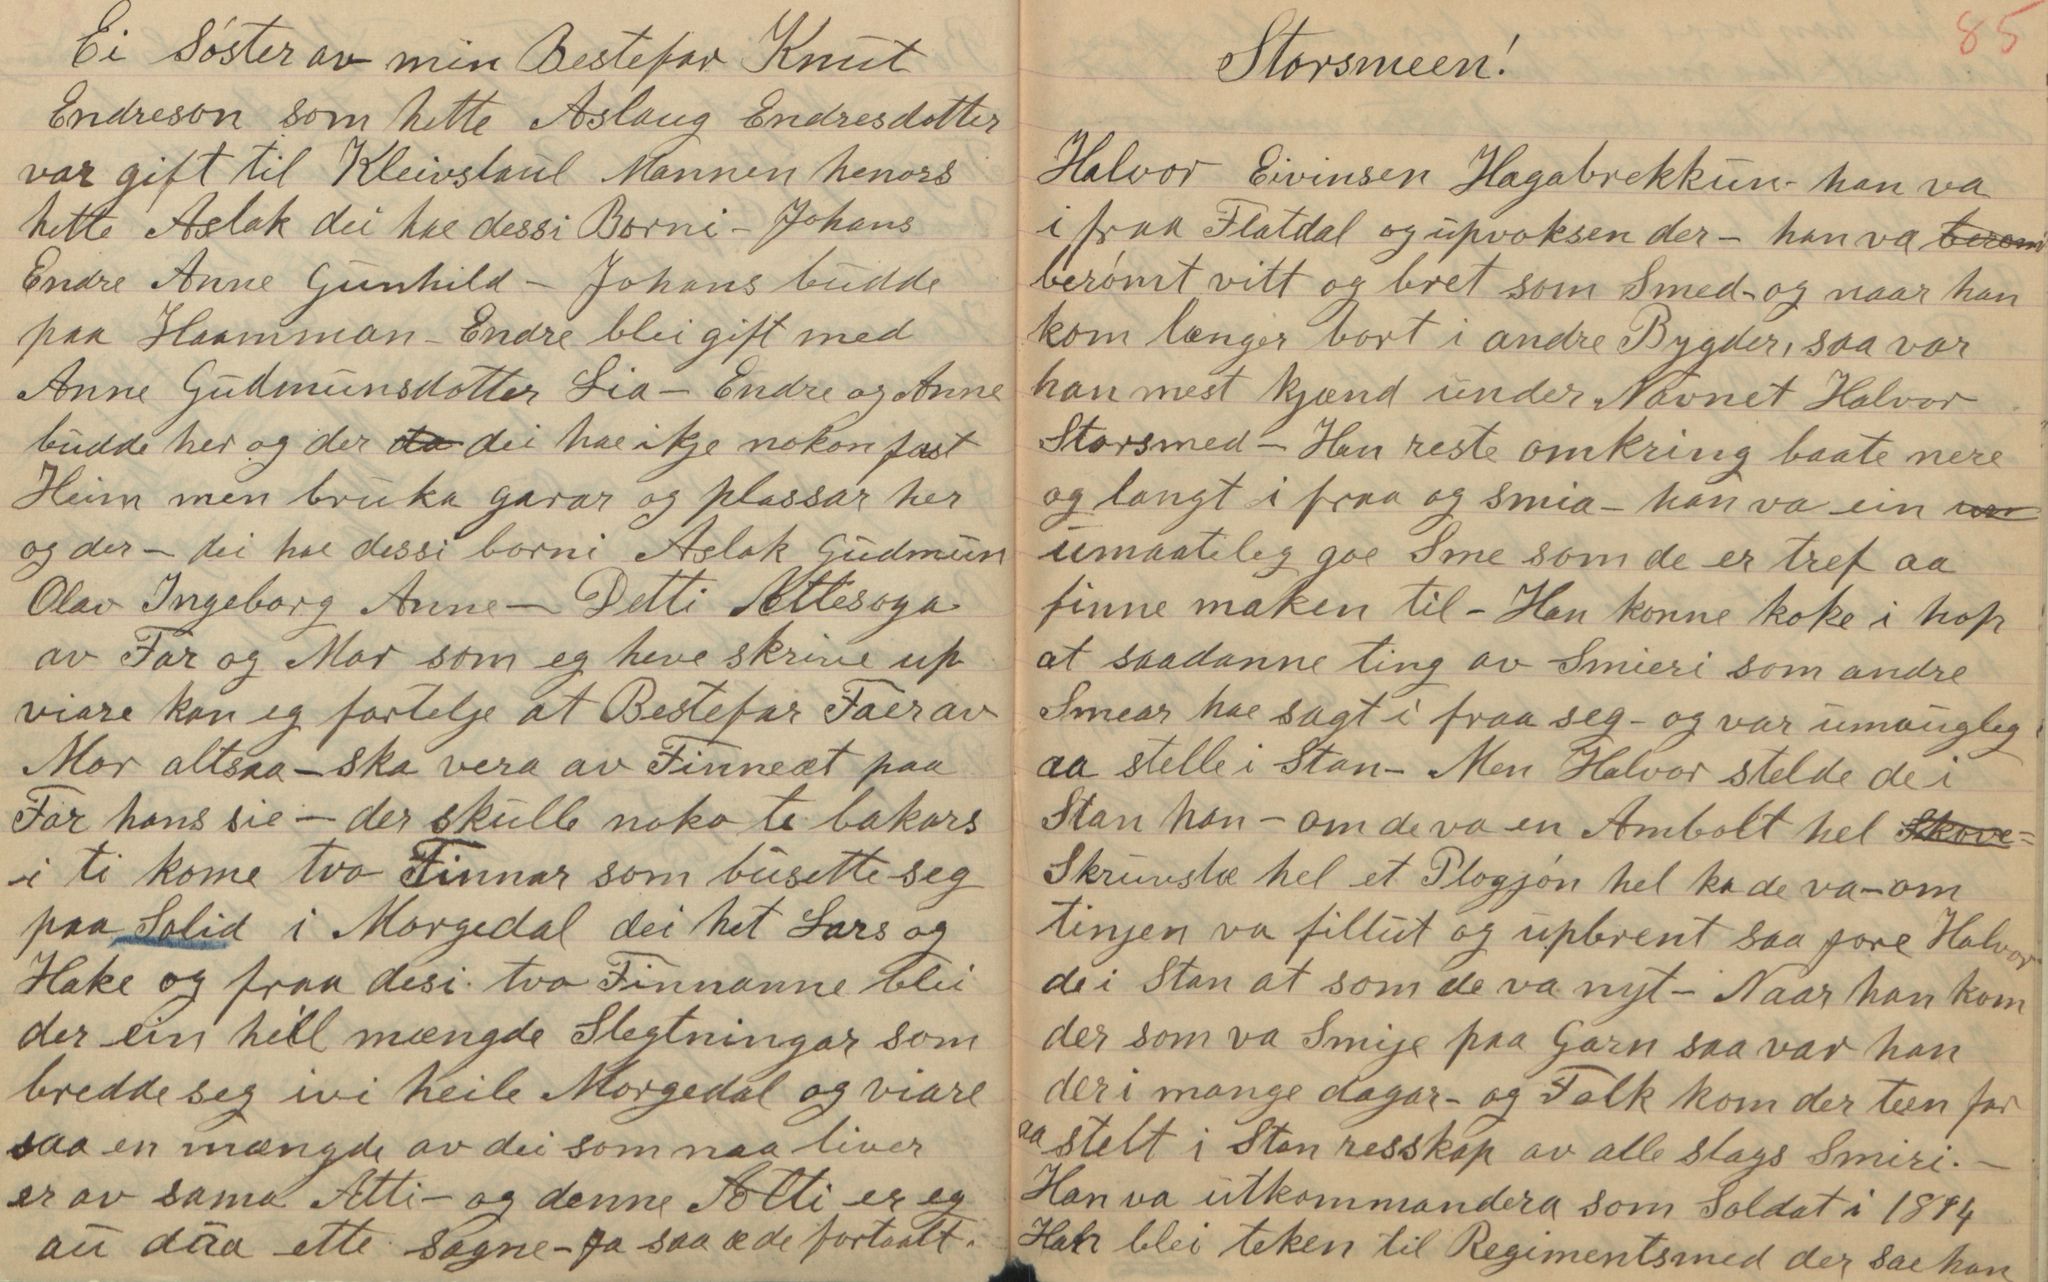 Ei Søster av min Bestefar Knut
Endreson som hette Aslaug Endresdotter
var gift til Kleivstaul Mannen henors
hette Aslak dei hae dessi Borni - Johans
Endre Anne Gunhild - Johans budde
paa Haamman - Endre blei gift med
Anne Gudmunsdotter Lia - Endre og Anne
budde her og der da dei hae ikje nokon fast
Heim men bruka garar og plassar her
og der - dei hae dessi borni Aslak Gudmun
Olav Ingeborg Anne - Detti Ættesoga
av Far og Mor som eg heve skrive up
viare kan eg fortelje at Bestefar Faer av
Mor altsaa - ska vera av Finneæt paa
Far hans sie - der skulle noko te bakars
i ti kome tvo Finnar som busette seg
paa Solid i Morgedal dei het Lars og
Hake og fraa desi tvo Finnanne blei
der ein heil mængde Slegtningar som
bredde seg ivi heile Morgedal og viare
saa en mængde av dei som naa liver
er av sama Ætti - og denne Ætti er eg
au dua ette Sogne - ja saa æ de fortaalt.
85
Storsmeen!
Halvor Eivinsen Hagabrekkun - han va
i fraa Flatdal og upvoksen der - han va berømt
berømt vitt og bret som Smed - og naar han
kom længer bort i andre Bygder, saa var
han mest kjænd under Navnet Halvor
Storsmed - Han reste omkring baate nere
og langt i fraa og smia - han va ein
umaateleg goe Sme som de er tref aa
finne maken til - Han konne koke i hop
at saadanne ting av Smieri som andre
Smear hae sagt i fraa seg - og var umaugleg
aa stelle i Stan - Men Halvor stelde de i
Stan han - om de va en Ambolt hel Skove=
Skruvstæ hel et Plogjøn hel ka de va - om
tinjen va fillut og upbrent saa jore Halvor
de i Stan at som de va nyt - Naar han kom
der som va Smije paa Garn saa var han
der i mange dagar - og Folk kom der teen for
aa stelt i Stan resskap av alle slags Smiri. -
Han va utkommandera som Soldat i 1814
Han blei teken til Regimentsmed der sae han